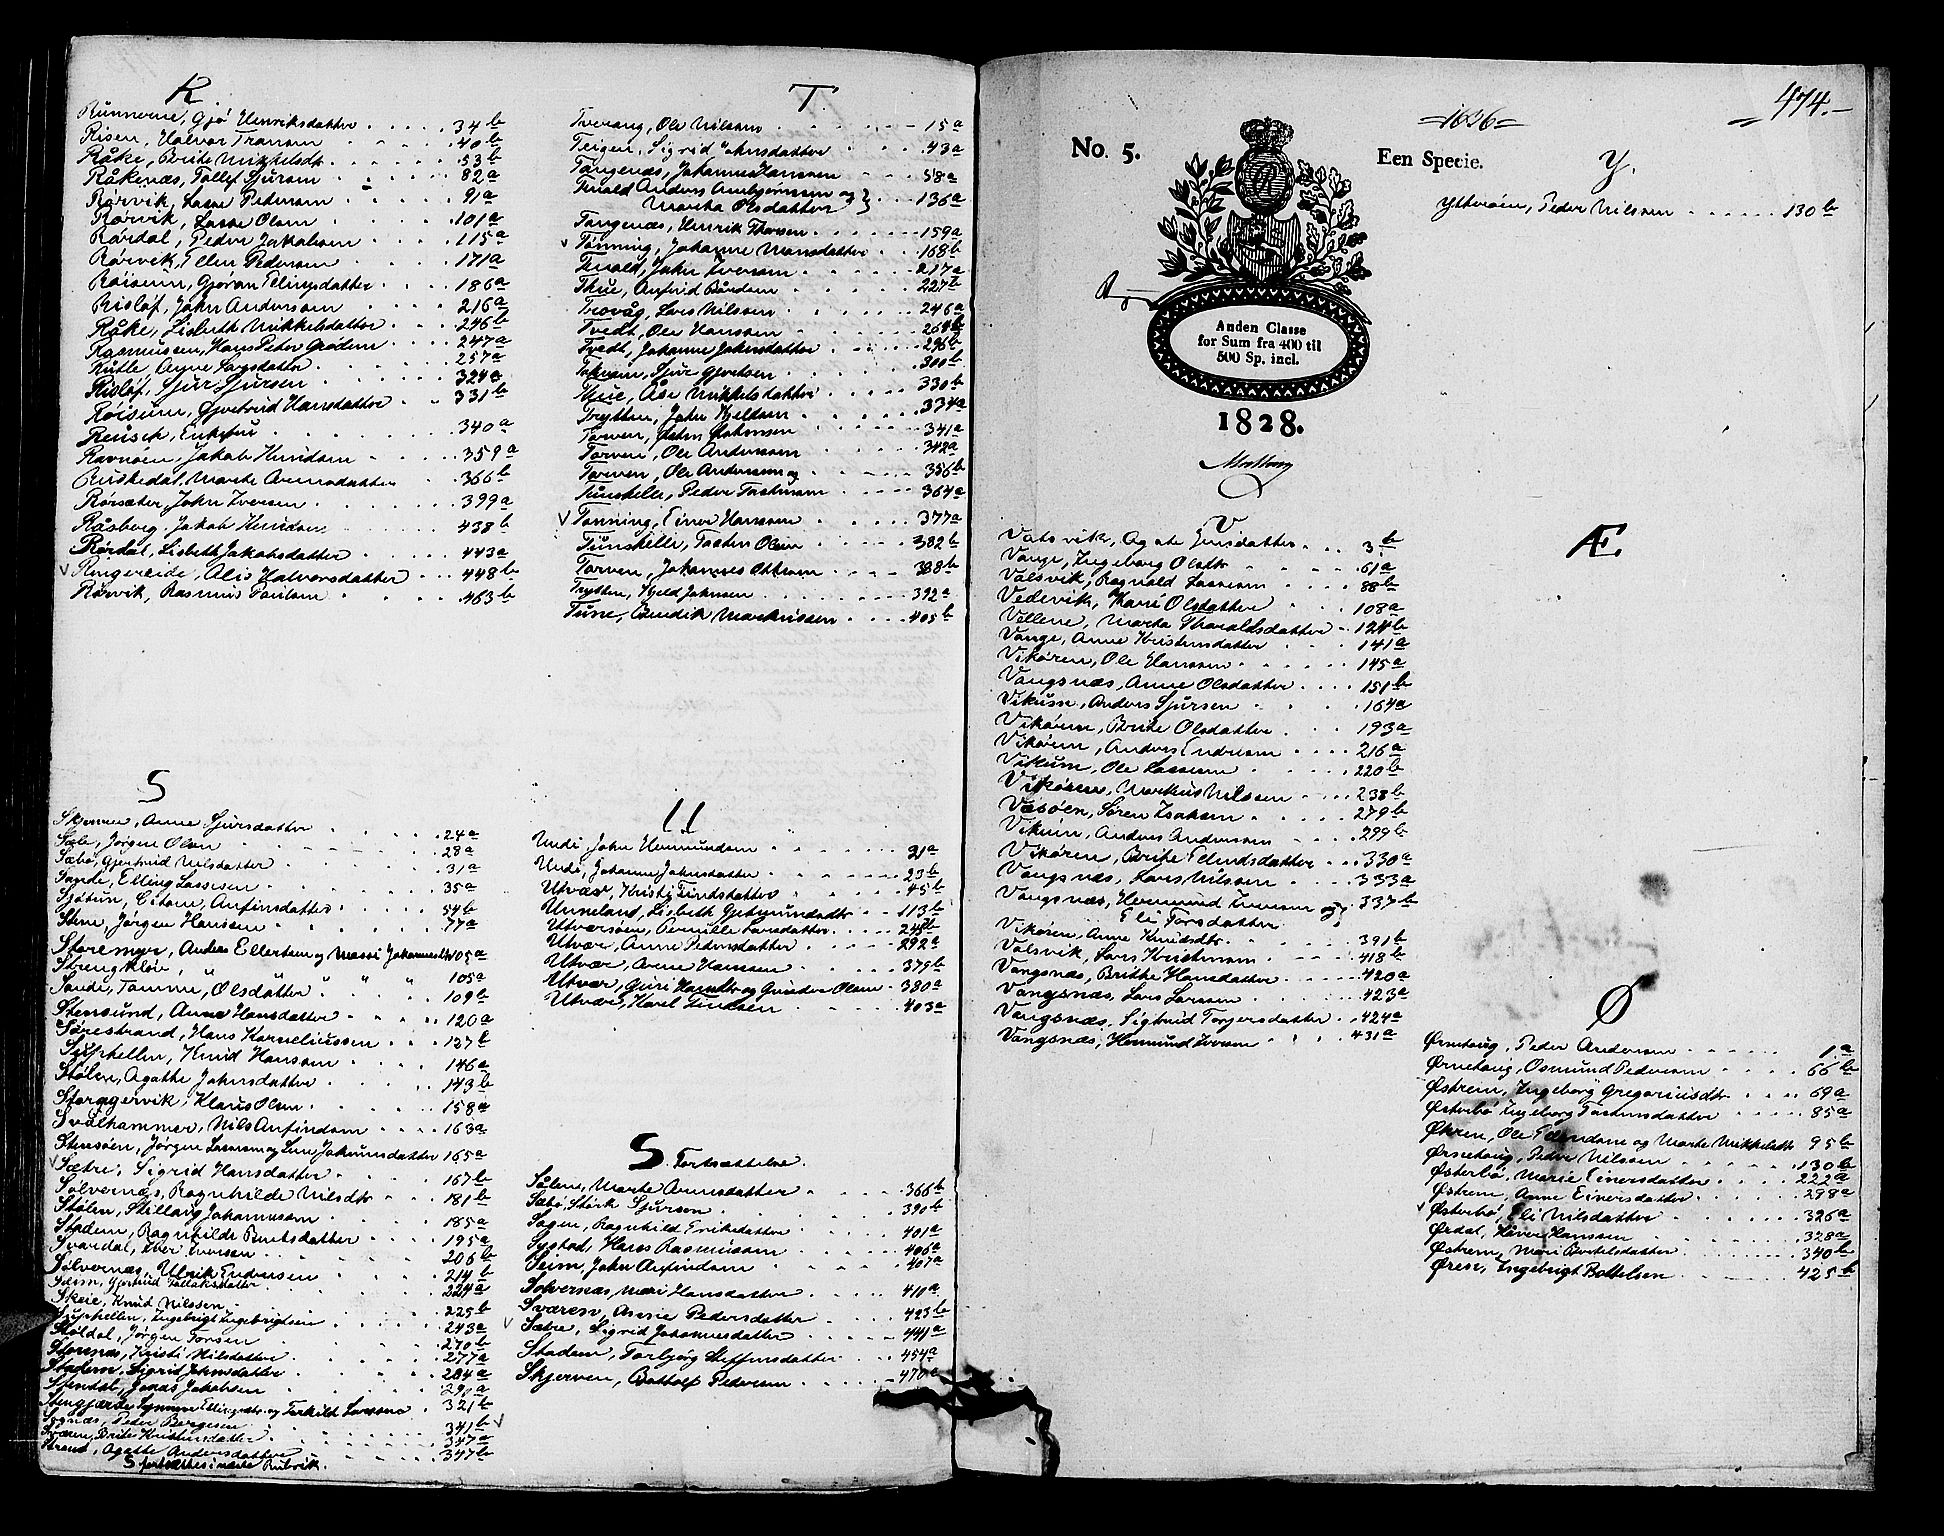 R.
Runnerne, Gjø Henriksdatter 34b
Risen, Halvor Transen 40b
Råke, Brite Mikkelsdt. 53b
Råkenæs, Tollef Sjursen 82a
Rørvik, Lasse Pedersen 91a
Rørvik, Lasse Olsen 101a
Rørdal, Peder Jakobsen 115a
Rørvik, Ellen Pedersen 171a
Røiseim, Gjøran Elingsdatter 186a
Risløf, John Anderssen 216a
Råke, Lisbeth Mikkelsdatter 246b
Rasmussen, Hans Peter Grødem 247a
Rutle, Anne Larsdatter 257a
Risløf, Sjur Sjursen 324a
Røisum, Gjertrud Hansdatter 331b
Reusch, Enkefru 340a
Ravnøen, Jakob Knudsen 359a
Ruskedal, Marte Arnesdatter 366b
Rørsæter, John Iversen 399a
Råsberg, Jakob Knudsen 438b
Rørdal, Lisbeth Jakobsdatter 443a
Ringereide, Alis Halvorsdatter 448b
Rørvik, Rasmus Poulsen 463b
S
Skjerven, Anne Sjursdatter 24a
Sæle, Jørgen Olsen 28a
Sæbø, Gjertrud Nilsdatter 31a
Sande, Elling Lassesen 35a
Sjøtun, Citone, Anfinsdatter 54b
Stene, Jørgen Hansen 77a
Storemyr, Anders Ellertsen og Massi Johannesdt. 105a
Strengkløv, " " " 105a
Sande, Tomine, Olsdatter 109b
Stensund, Anne Hansdatter 120a
Sørestrand, Hans Korneliussen 127b
Sylphellen, Knud Hansen 146a
Stølen, Agathe Johnsdatter 143b
Storagervik, Klaus Olsen 158a
Svalhammer, Nils Anfindsen 163a
Stensøen, Jørgen Lassesen og Lene Jokumsdatter 165a
Sætre, Sigrid Hansdatter 167b
Sølvernæs, Ragnhilde Nilsdtr 181b
Stølen, Stillaug Johannessen 185a
Stadem, Ragnhilde Bentsdatter 195a
Svardal, Iver Iversen 206b
Sølvernæs, Ulrik Endresen 214b
Seim, Gjertrud Tollaksdatter 224a
Skeie, Knud Nilssen 225b
Sylphellen, Ingebrigt Ingebrigtsen 243a
Støldal, Jørgen Torsen 270b
Stornæs, Kristi Nilsdatter 277a
Stadem, Sigrid Johnsdatter 284a
Stendal, Jonas Jakobsen 290a
Stengjærde Synneve Ellingsdtr. og Torkild Larssen 321b
Sognæs, Peder Børgesen 341b
Sværen, Brite Kristensdatter 347a
Strand, Agathe Andersdatter 347b
S fortsættes i næste Rubrik.
T.
Tverang, Ole Nilssen 15a
Teigen, Sigrid Johnsdatter 43a
Tangenæs, Johannes Hanssen 58a
Tuald Anders Ambjørnsen og }
Martha Olsdatter } 136a
Tangenæs, Henrik Thorsen 159a
Tønning, Johanne Monsdatter 168b
Tuald, John Iversen 217a
Thue, Anfind Bårdsen 227b
Trovåg, Lars Nilssen 246a
Tvedt, Ole Hanssen 264b
Tvedt, Johanne Johnsdatter 296b
Tokvam, Sjur Gjertsen 300b
Thue, Åse Mikkelsdatter 330b
Trytten, John Kjeldsen 334a
Torven, Østen Østensen 341a
Torven, Ole Anderssen 342a
Torven, Ole Anderssen og 356b
Tunshelle, Peder Tostensen 364a
Tønning, Einer Hanssen 377a
Tunshelle, Tosten Olsen 382b
Torven, Johannes Ottesen 388b
Trytten, Kjeld Johnsen 392a
Tune, Bendik Markussen 405b
U
Undi, John Hermundsen 21a
Undi, Johanne Johnsdatter 23b
Utvær, Kristi Findsdatter 45b
Unneland, Lisbeth Gjermundsdtr 113b
Utværsøen, Pernille Larsdatter 248b
Utvær, Anne Pedersdatter 292a
Utvær, Arne Hanssen 379b
Utvær, Guri Hansdtr og Gunder Olsen 380a
Utvær, Karel Findsen 403a
S. Fortsættelse.
Sålen, Marte Arnesdatter 366b
Sæbø, Størk Sjursen 390b
Sagen, Ragnhild Eriksdatter 401a
Systad, Hans Rasmussen 406a
Seim, John Anfindsen 407a
Solvernæs, Mari Hansdatter 410a
Sværen, Anne Pedersdatter 423b
Sætre, Sigrid Johannesdatter 441a
Stadem, Torbjørg Steffensdatter 454a
Skjerven, Bottolf Pedersen 470a
474.
1826
No. 5.
Een Specie.
Anden Classe
for Sum fra 400 til
500 Sp. incl.
1828.
Y.
Ytterøen, Peder Nilssen 130b
V
Vatsvik, Agate Jensdatter 3b
Vange, Ingeborg Olsdtr 61a
Valsvik, Ragnald Lassesen 88b
Vedvik, Kari Olsdatter 108a
Vellene, Marta Tharaldsdatter 124b
Vange, Anne Kristensdatter 141a
Vikøren, Ole Hanssen 145a
Vangsnæs, Anne Olsdatter 151b
Vikum, Anders Sjursen 164a
Vikøren, Brite Olsdatter 193a
Vikøren, Anders Endresen 216a
Vikum, Ole Lassesen 220b
Vikøren, Markus Nilssen 238b
Værøen, Søren Isaksen 279b
Vikum, Anders Anderssen 299b
Vikøren, Brite Elendsdatter 330a
Vangsnæs, Lars Nilssen 333a
Vangsnæs, Hermund Iversen og } 337b
Eli Torsdatter
Vikøren, Anne Knudsdtr. 391b
Valsvik, Lars Kristensen 418b
Vangsnæs, Brithe Hansdatter 420a
Vangsnæs, Lars Larssen 423a
Vangsnæs, Sigtrud Torgersdatter 424a
Vangsnæs, Hermund Iversen 431a
Æ.
Ø
Ørnehaug, Peder Anderssen 1.a
Ørnehaug, Osmund Pederssen 66b
Østrem, Ingeborg Gregoriusdtr 69a
Østerbø Ingeborg Tostensdatter 85a
Økren, Ole Elendsen og Marte Mikkelsdt. 95b
Ørnehaug, Peder Nilssen 130b
Østerbø, Marie Einersdatter 222a
Østrem, Anne Einersdatter 298a
Østerbø, Eli Nilsdatter 326a
Ørdal, Haver Hanssen 328a
Østrem, Mari Bertelsdatter 340b
Øren, Ingebrigt Bottelsen 425b